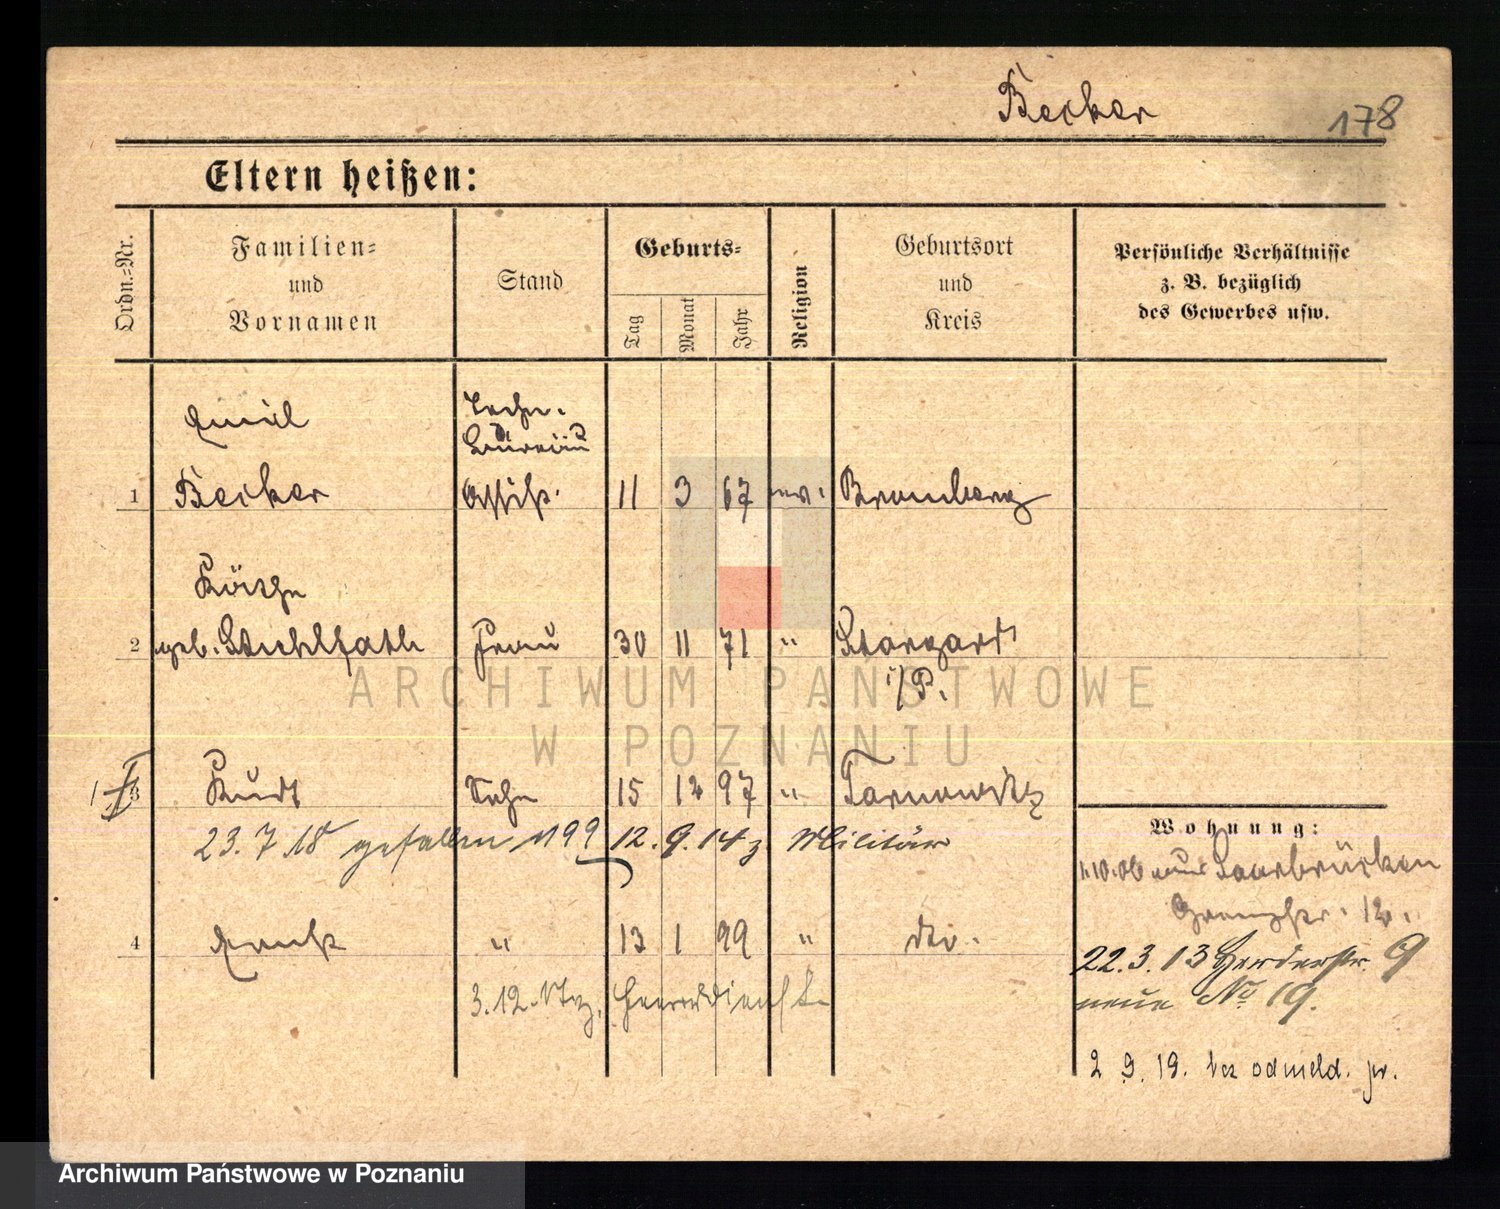 Becker
178
Eltern heißen:
Ordn.=Nr.
Familien=
und
Vornamen
Stand
Geburts=
Tag
Monat
Jahr
Religion
Geburtsort
und
Kreis
Persönliche Verhältnisse
z. B. bezüglich
des Gewerbes usw.
Emil Techn.
Büreau
1 Becker Assist. 11 3 67 ev. Bromberg
Käthe
2 geb. Stuhlfath Frau 30 11 71 " Stargard
i/P.
3 Kurt Sohn 15 12 97 " Tarnowitz
23.7.18 gefallen 199 12.9.14 z. Militär
4 Ernst " 13 1 99 " dto.
3.12. z. Heeresdienst
Wohnung:
1.10.06 aus Saarbrücken
12.
22.3.13 Herderstr. 9
neue No 19.
2 9. 19. bez odmeld. pr.
ARCHIWUM PAŃSTWOWE
W POZNANIU
Archiwum Państwowe w Poznaniu